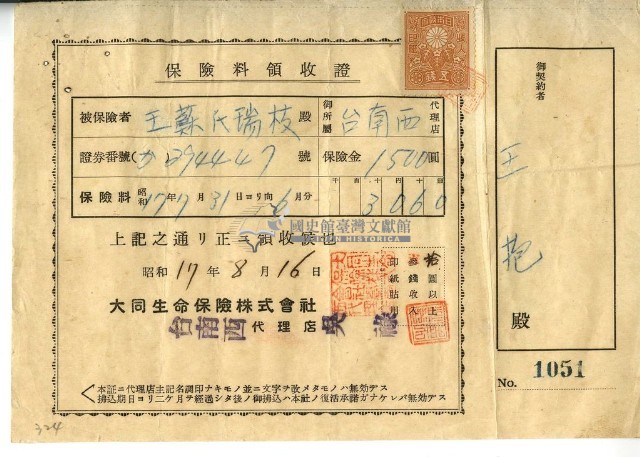 保險料領收證
被保險者 王蘇氏瑞枝 殿
御所屬 台南西 代理店
證券番號(か 294447 號
保險金 1500圓
保險料 昭和17年7月31日ヨリ向6月分
千百十圓十錢
3060
上記之通リ正ニ領收候也
國史館臺灣文獻館
TAIWAN HISTORICA
昭和17年8月16日
拾圓以上
錢收入
印紙貼用
大同生命保險株式會社
台南西代理店
本証ニ代理店主記名調印ナキモノ並ニ文字ヲ改メタモノハ無効デス
拂込期日ヨリ二ケ月ヲ經過シタ後ノ御拂込ハ本社ノ復活承諾ガナケレバ無効デス
324
御契約者
王抱
殿
No. 1051